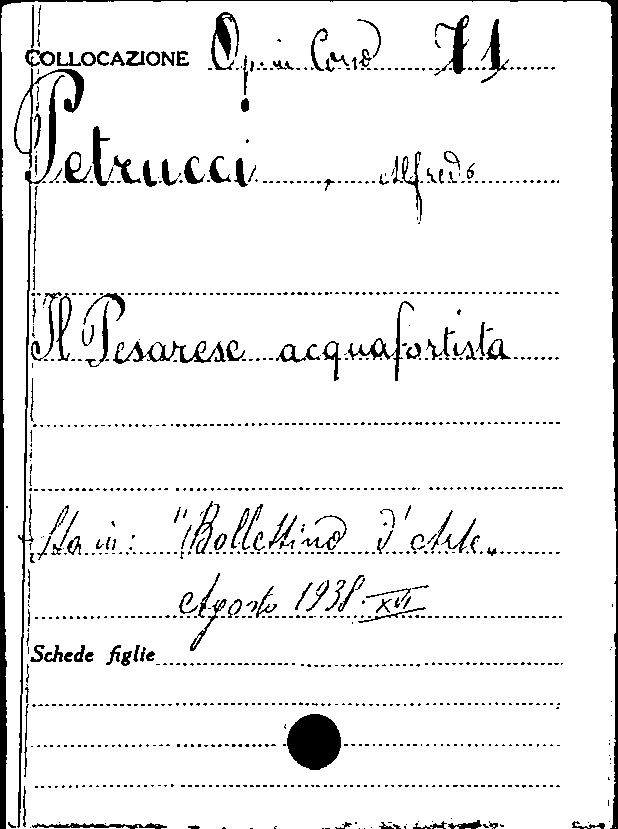 COLLOCAZIONE Op. in Corso 71
Petrucci, Alfredo
Il Pesarese acquafortista
Sta in: "Bollettino d'Arte„
Agosto 1938. XVI
Schede figlie